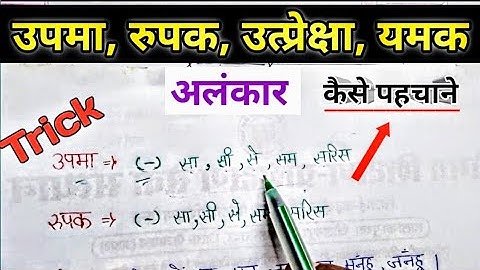 उपमा, रुपक, उत्प्रेक्षा, यमक
अलंकार
कैसे पहचाने
Trick
उपमा ⇒ (-) सा, सी, से, सम, सरिस
रुपक ⇒ (-) सा, सी, से, सम, सरिस
मनहु, जनहु।